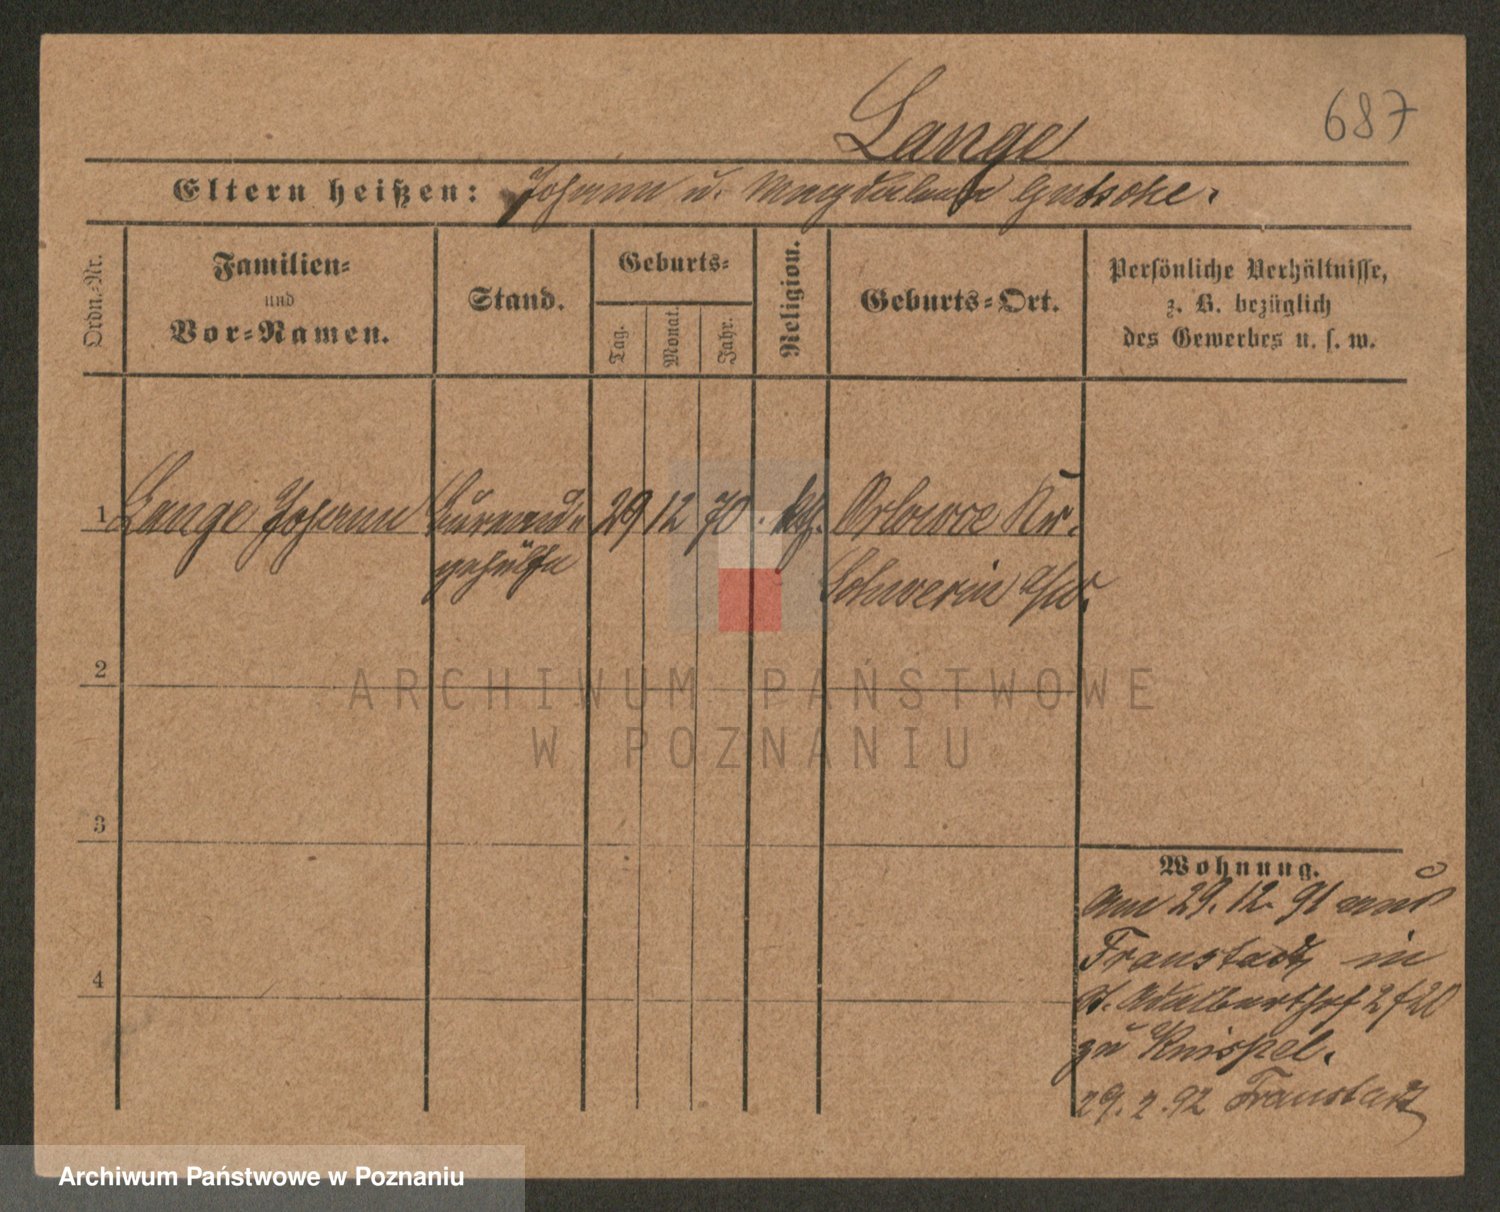 687
Lange
Eltern heißen: Johann u. Magdalena Gutsche.
Ordn.-Nr.
Familien-
und
Vor-Namen.
Stand.
Geburts-
Tag.
Monat.
Jahr.
Religion.
Geburts-Ort.
Persönliche Verhältnisse,
z. B. bezüglich
des Gewerbes u. s. w.
1 Lange Johann 29 12 70. kth. Orlowce Kr.
gehülfe Schwerin a/W.
2
3
4
Wohnung.
am 29. 12. 91 aus
Fraustadt in
St. Adalberthof
zu Knispel.
29. 2. 92 Fraustadt
ARCHIWUM PAŃSTWOWE
W POZNANIU
Archiwum Państwowe w Poznaniu